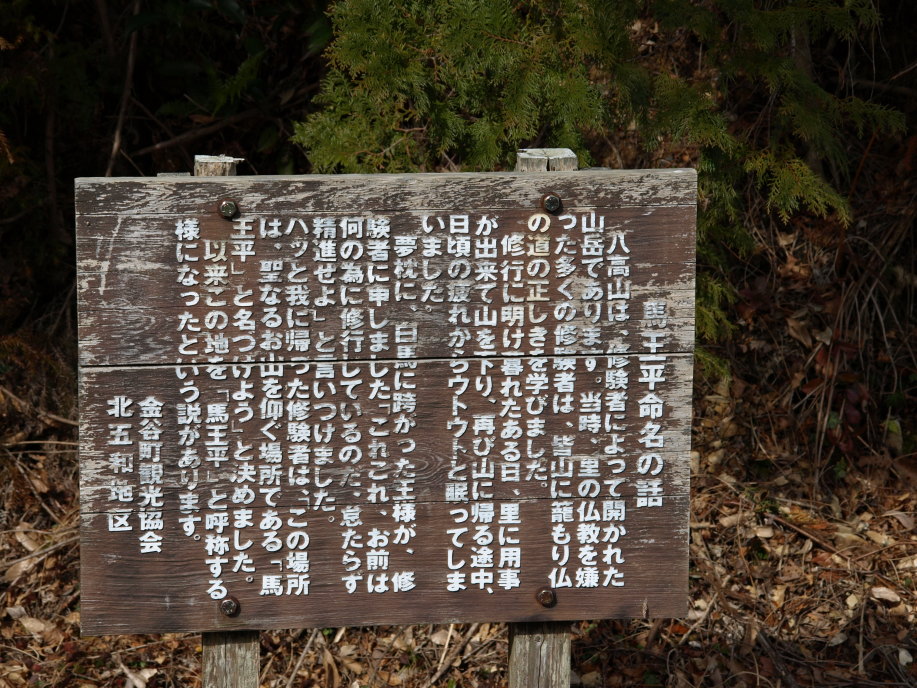 馬王平命名の話
八高山は、修験者によって開かれた
山岳であります。当時、里の仏教を嫌
った多くの修験者は、皆山に籠もり仏
の道の正しきを学びました。
修行に明け暮れたある日、里に用事
が出来て山を下り、再び山に帰る途中、
日頃の疲れからウトウトと眠ってしま
いました。
夢枕に、白馬に跨がった王様が、修
験者に申しました「これこれ、お前は
何の為に修行しているのだ、怠たらず
精進せよ」と言いつけました。
ハッと我に帰った修験者は、この場所
は、聖なるお山を仰ぐ場所である「馬
王平」と名つけようと決めました。
以来この地を「馬王平」と呼称する
様になったという説があります。
金谷町観光協会
北五和地区